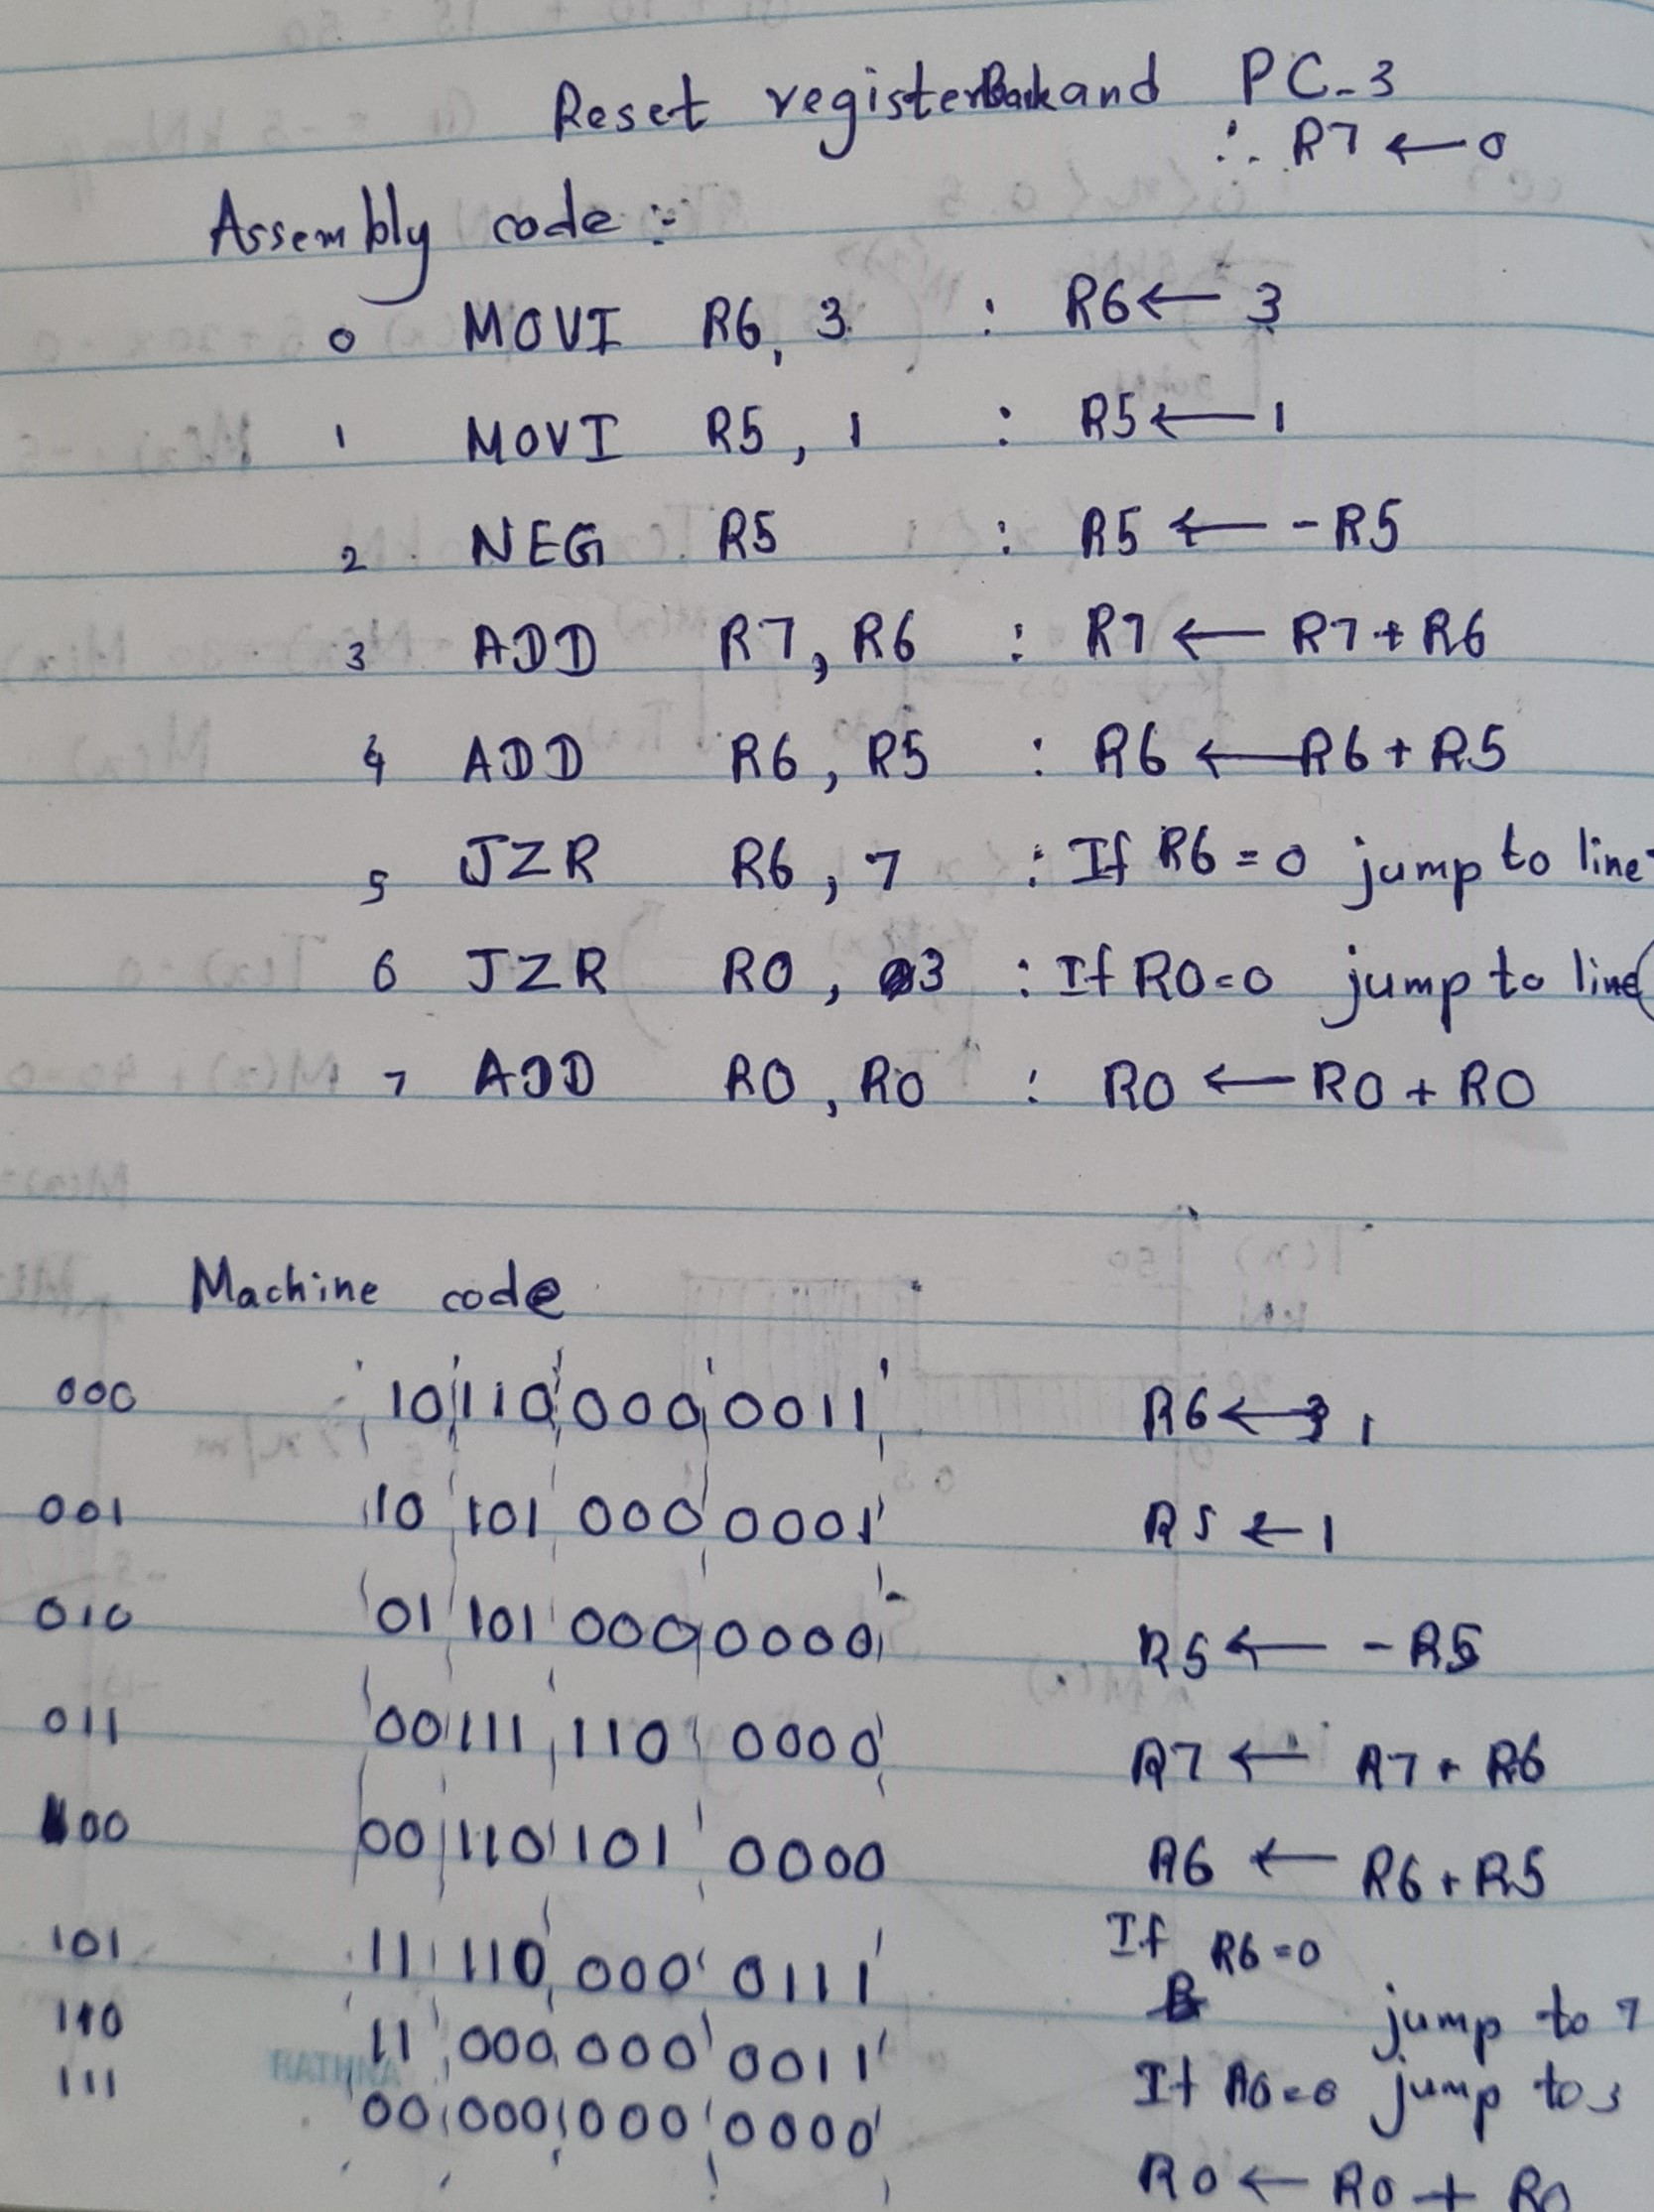 Reset registerBank and PC_3
∴ R7 ← 0
Assembly code :-
0 MOVI R6, 3 : R6 ← 3
1 MOVI R5, 1 : R5 ← 1
2 NEG R5 : R5 ← -R5
3 ADD R7, R6 : R7 ← R7 + R6
4 ADD R6, R5 : R6 ← R6 + R5
5 JZR R6, 7 : If R6 = 0 jump to line
6 JZR R0, 3 : If R0 = 0 jump to line
7 ADD R0, R0 : R0 ← R0 + R0
Machine code
000 10 110 000 0011 R6 ← 3
001 10 101 000 0001 R5 ← 1
010 01 101 000 0000 R5 ← -R5
011 00 111 110 0000 R7 ← R7 + R6
100 00 110 101 0000 R6 ← R6 + R5
101 11 110 000 0111 If R6 = 0
jump to 7
110 11 000 000 0011 If R0 = 0 jump to 3
111 00 000 000 0000
R0 ← R0 + R0
RATHNA